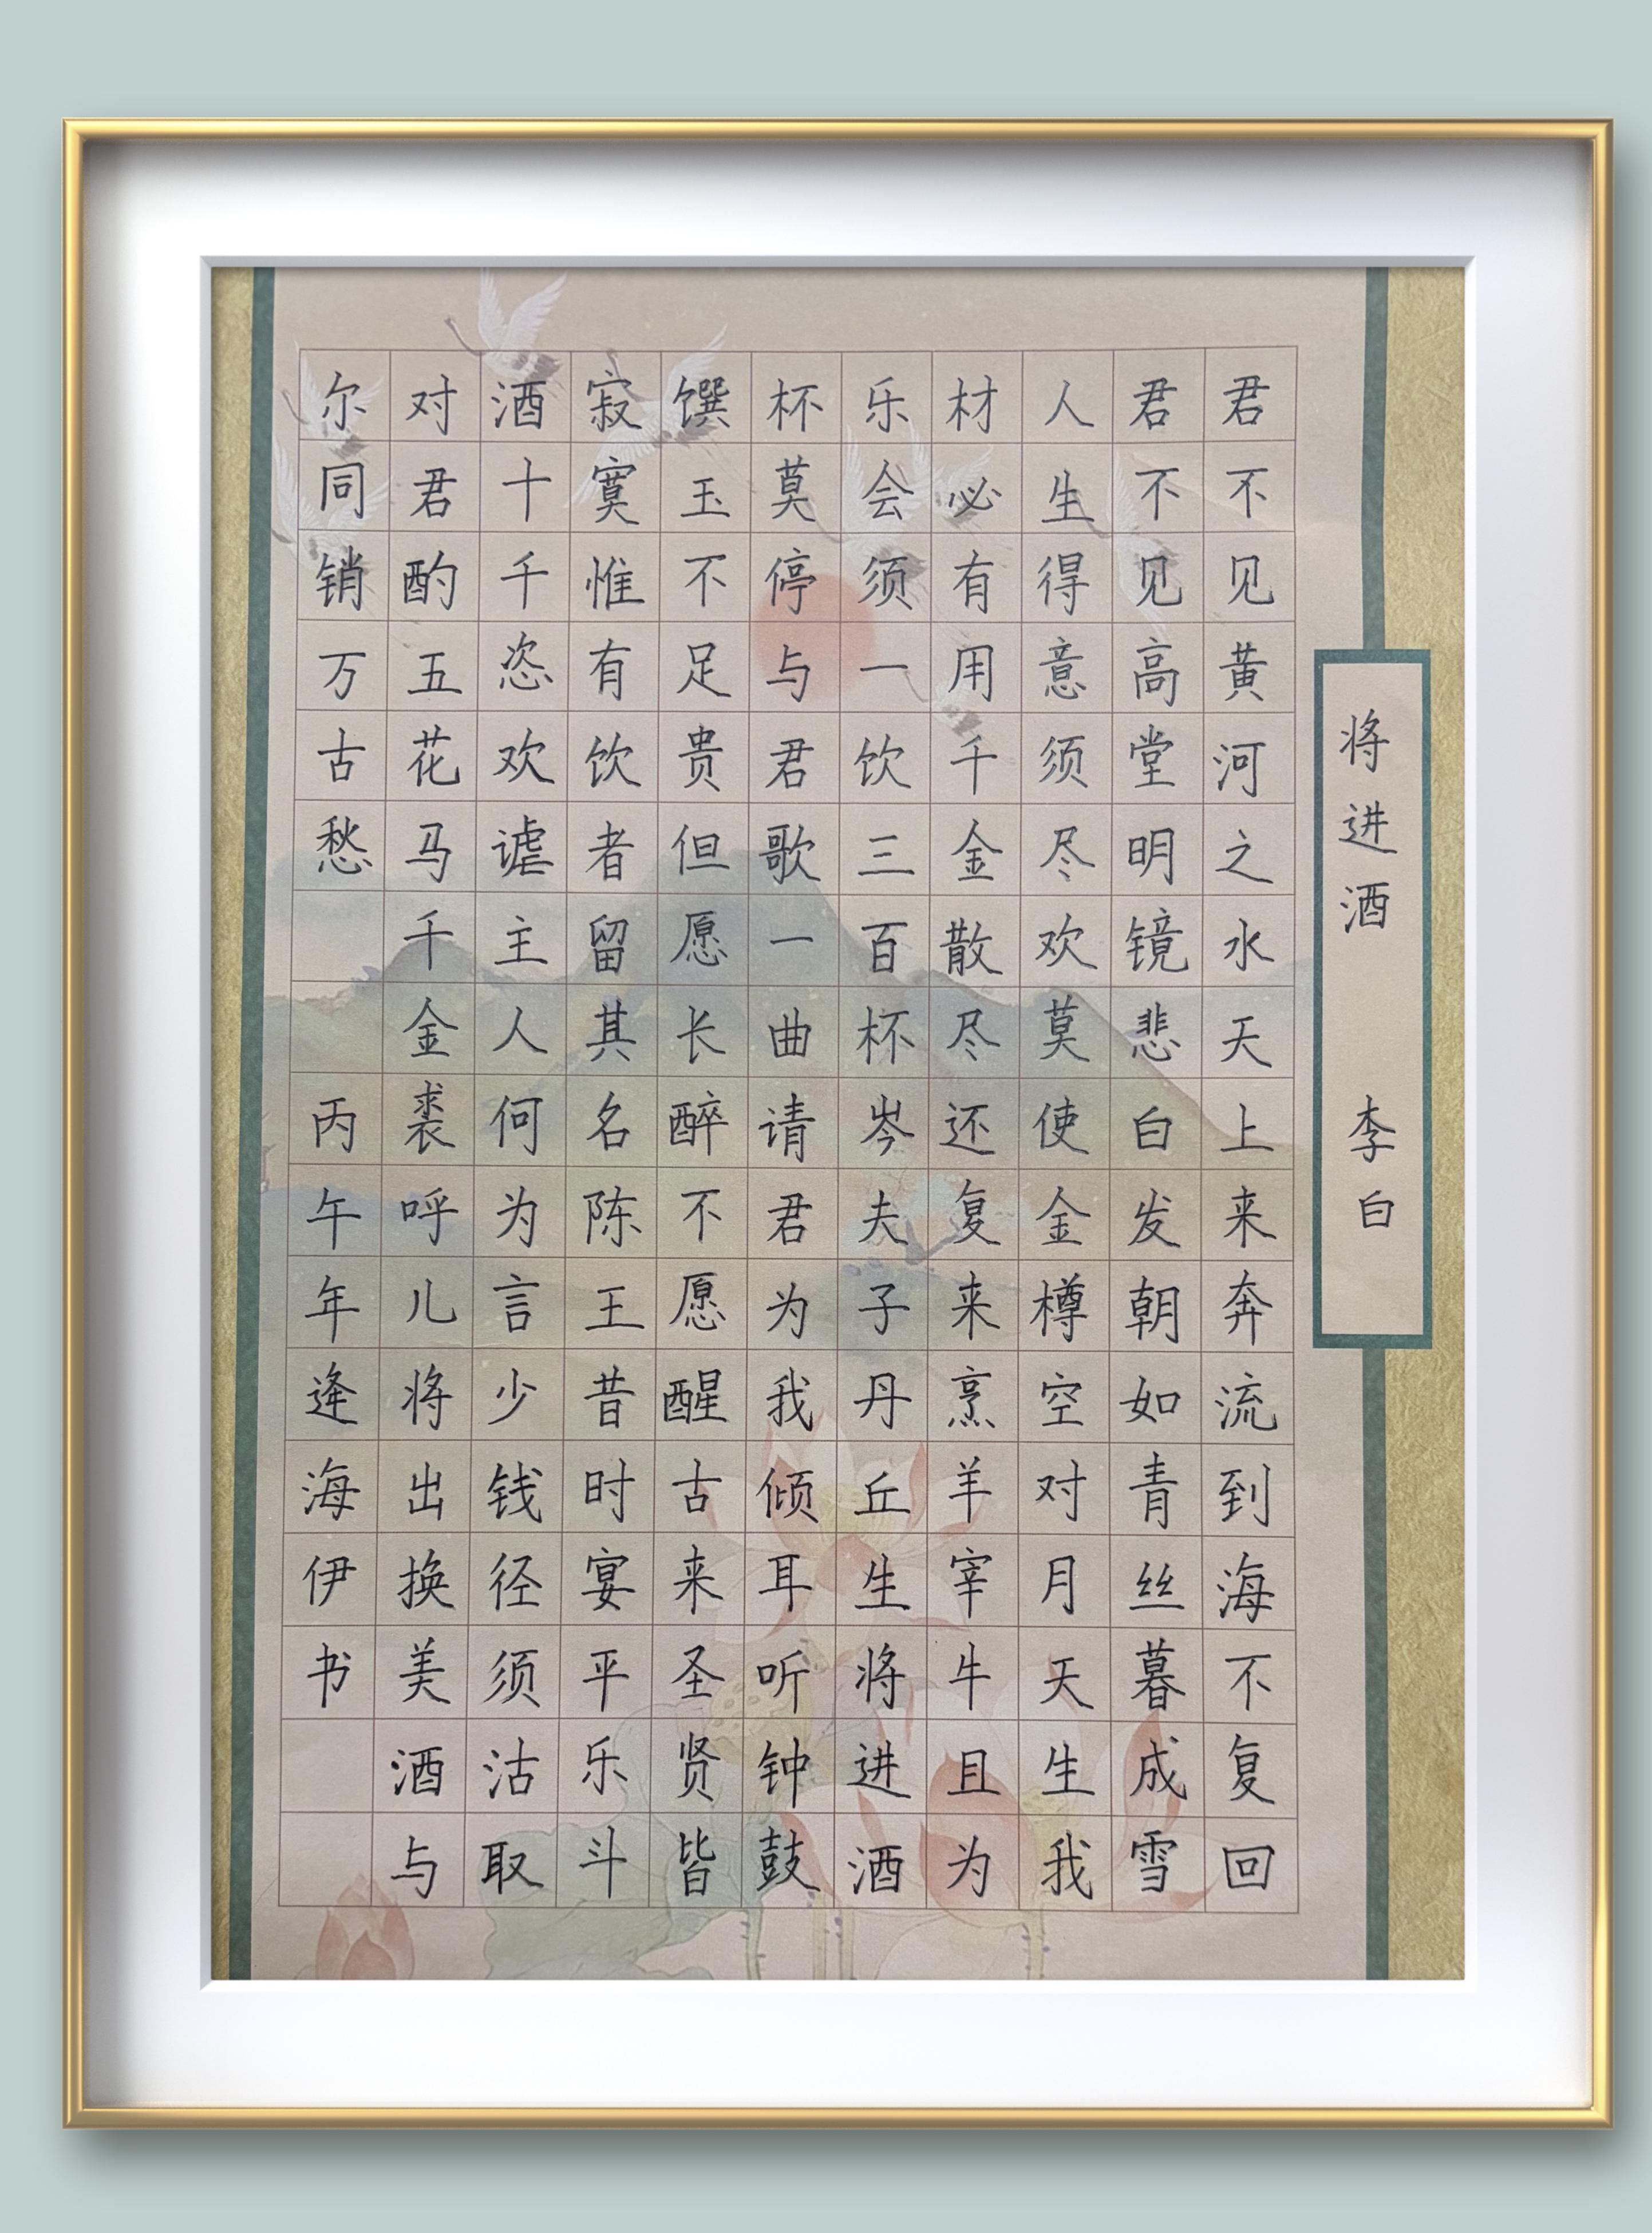 将进酒 李白
君不见黄河之水天上来奔流到海不复回
君不见高堂明镜悲白发朝如青丝暮成雪
人生得意须尽欢莫使金樽空对月天生我
材必有用千金散尽还复来烹羊宰牛且为
乐会须一饮三百杯岑夫子丹丘生将进酒
杯莫停与君歌一曲请君为我倾耳听钟鼓
馔玉不足贵但愿长醉不愿醒古来圣贤皆
寂寞惟有饮者留其名陈王昔时宴平乐斗
酒十千恣欢谑主人何为言少钱径须沽取
对君酌五花马千金裘呼儿将出换美酒与
尔同销万古愁 丙午年逢海伊书